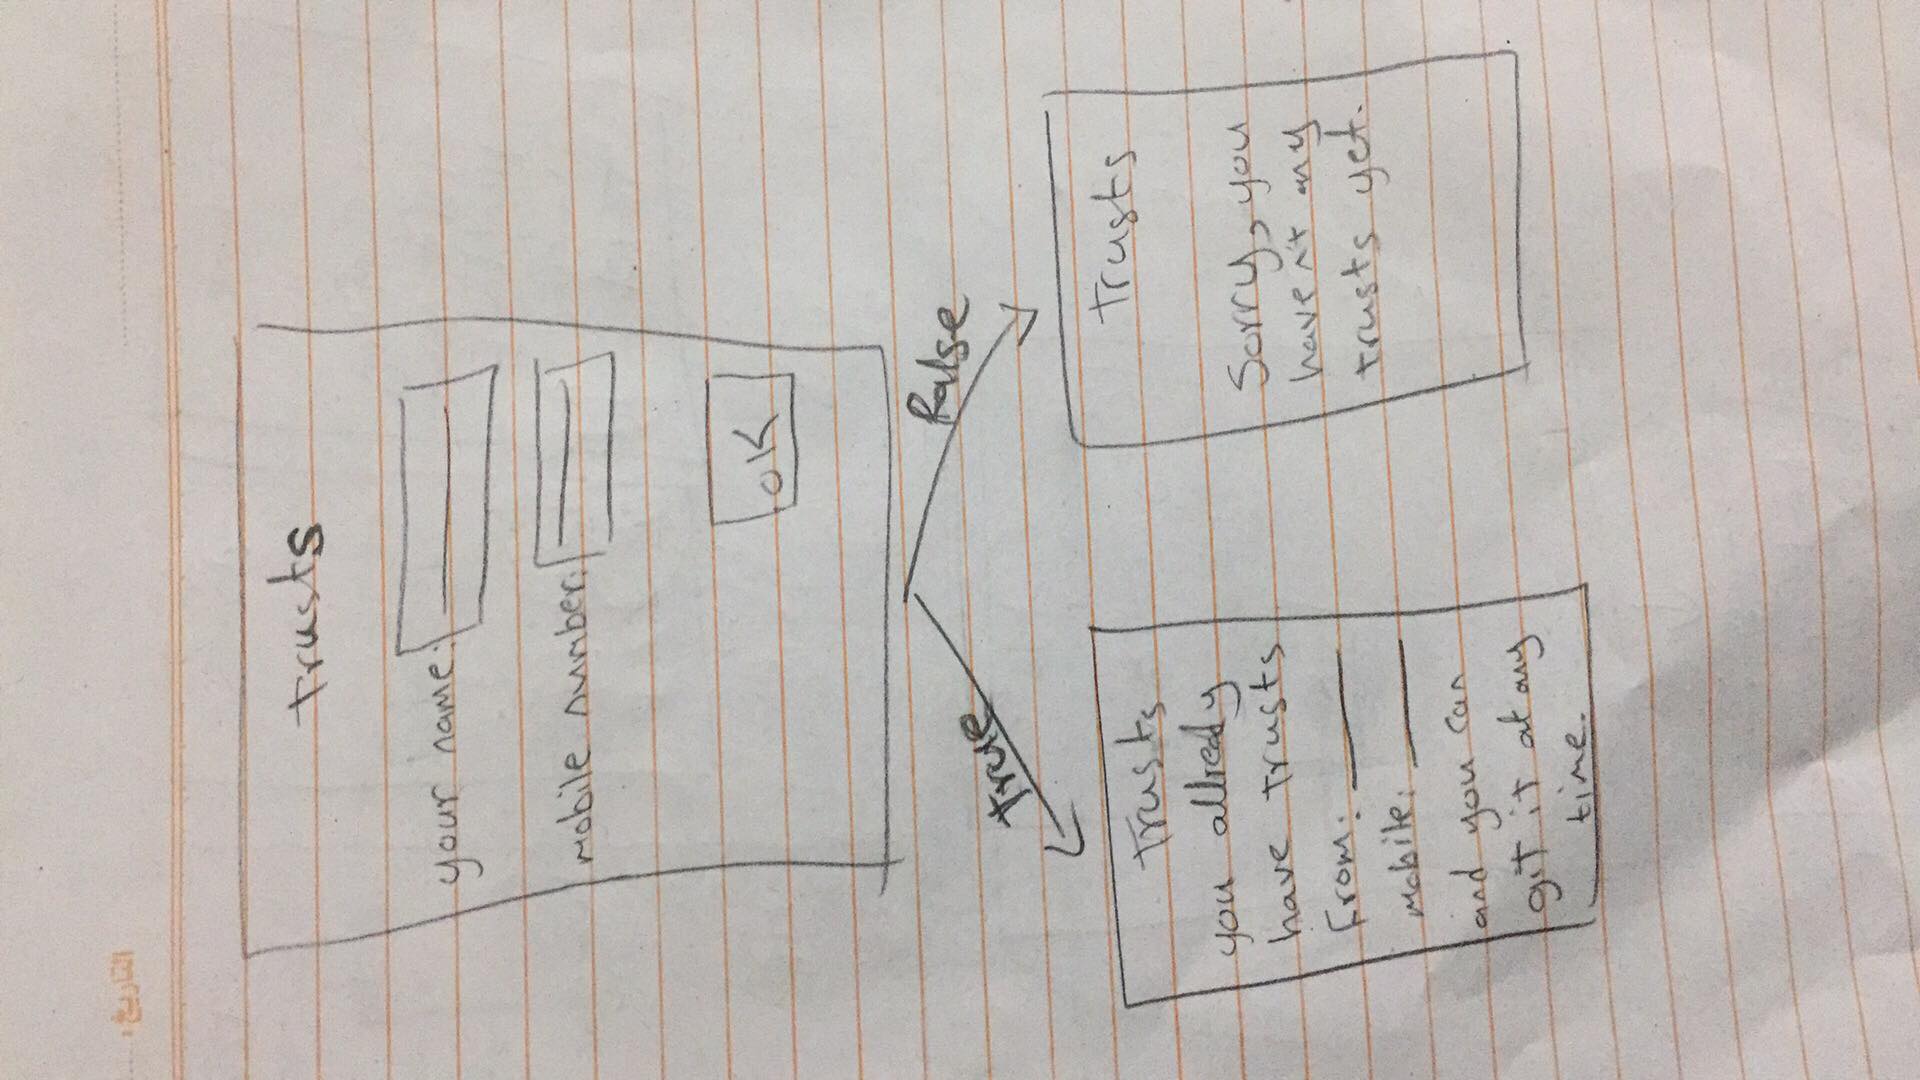 التاريخ:
Trusts
your name:
mobile number:
OK
True
False
Trusts
you allready
have trusts
From:
mobile:
and you can
git it at any
time.
Trusts
Sorry, you
have n't any
trusts yet.